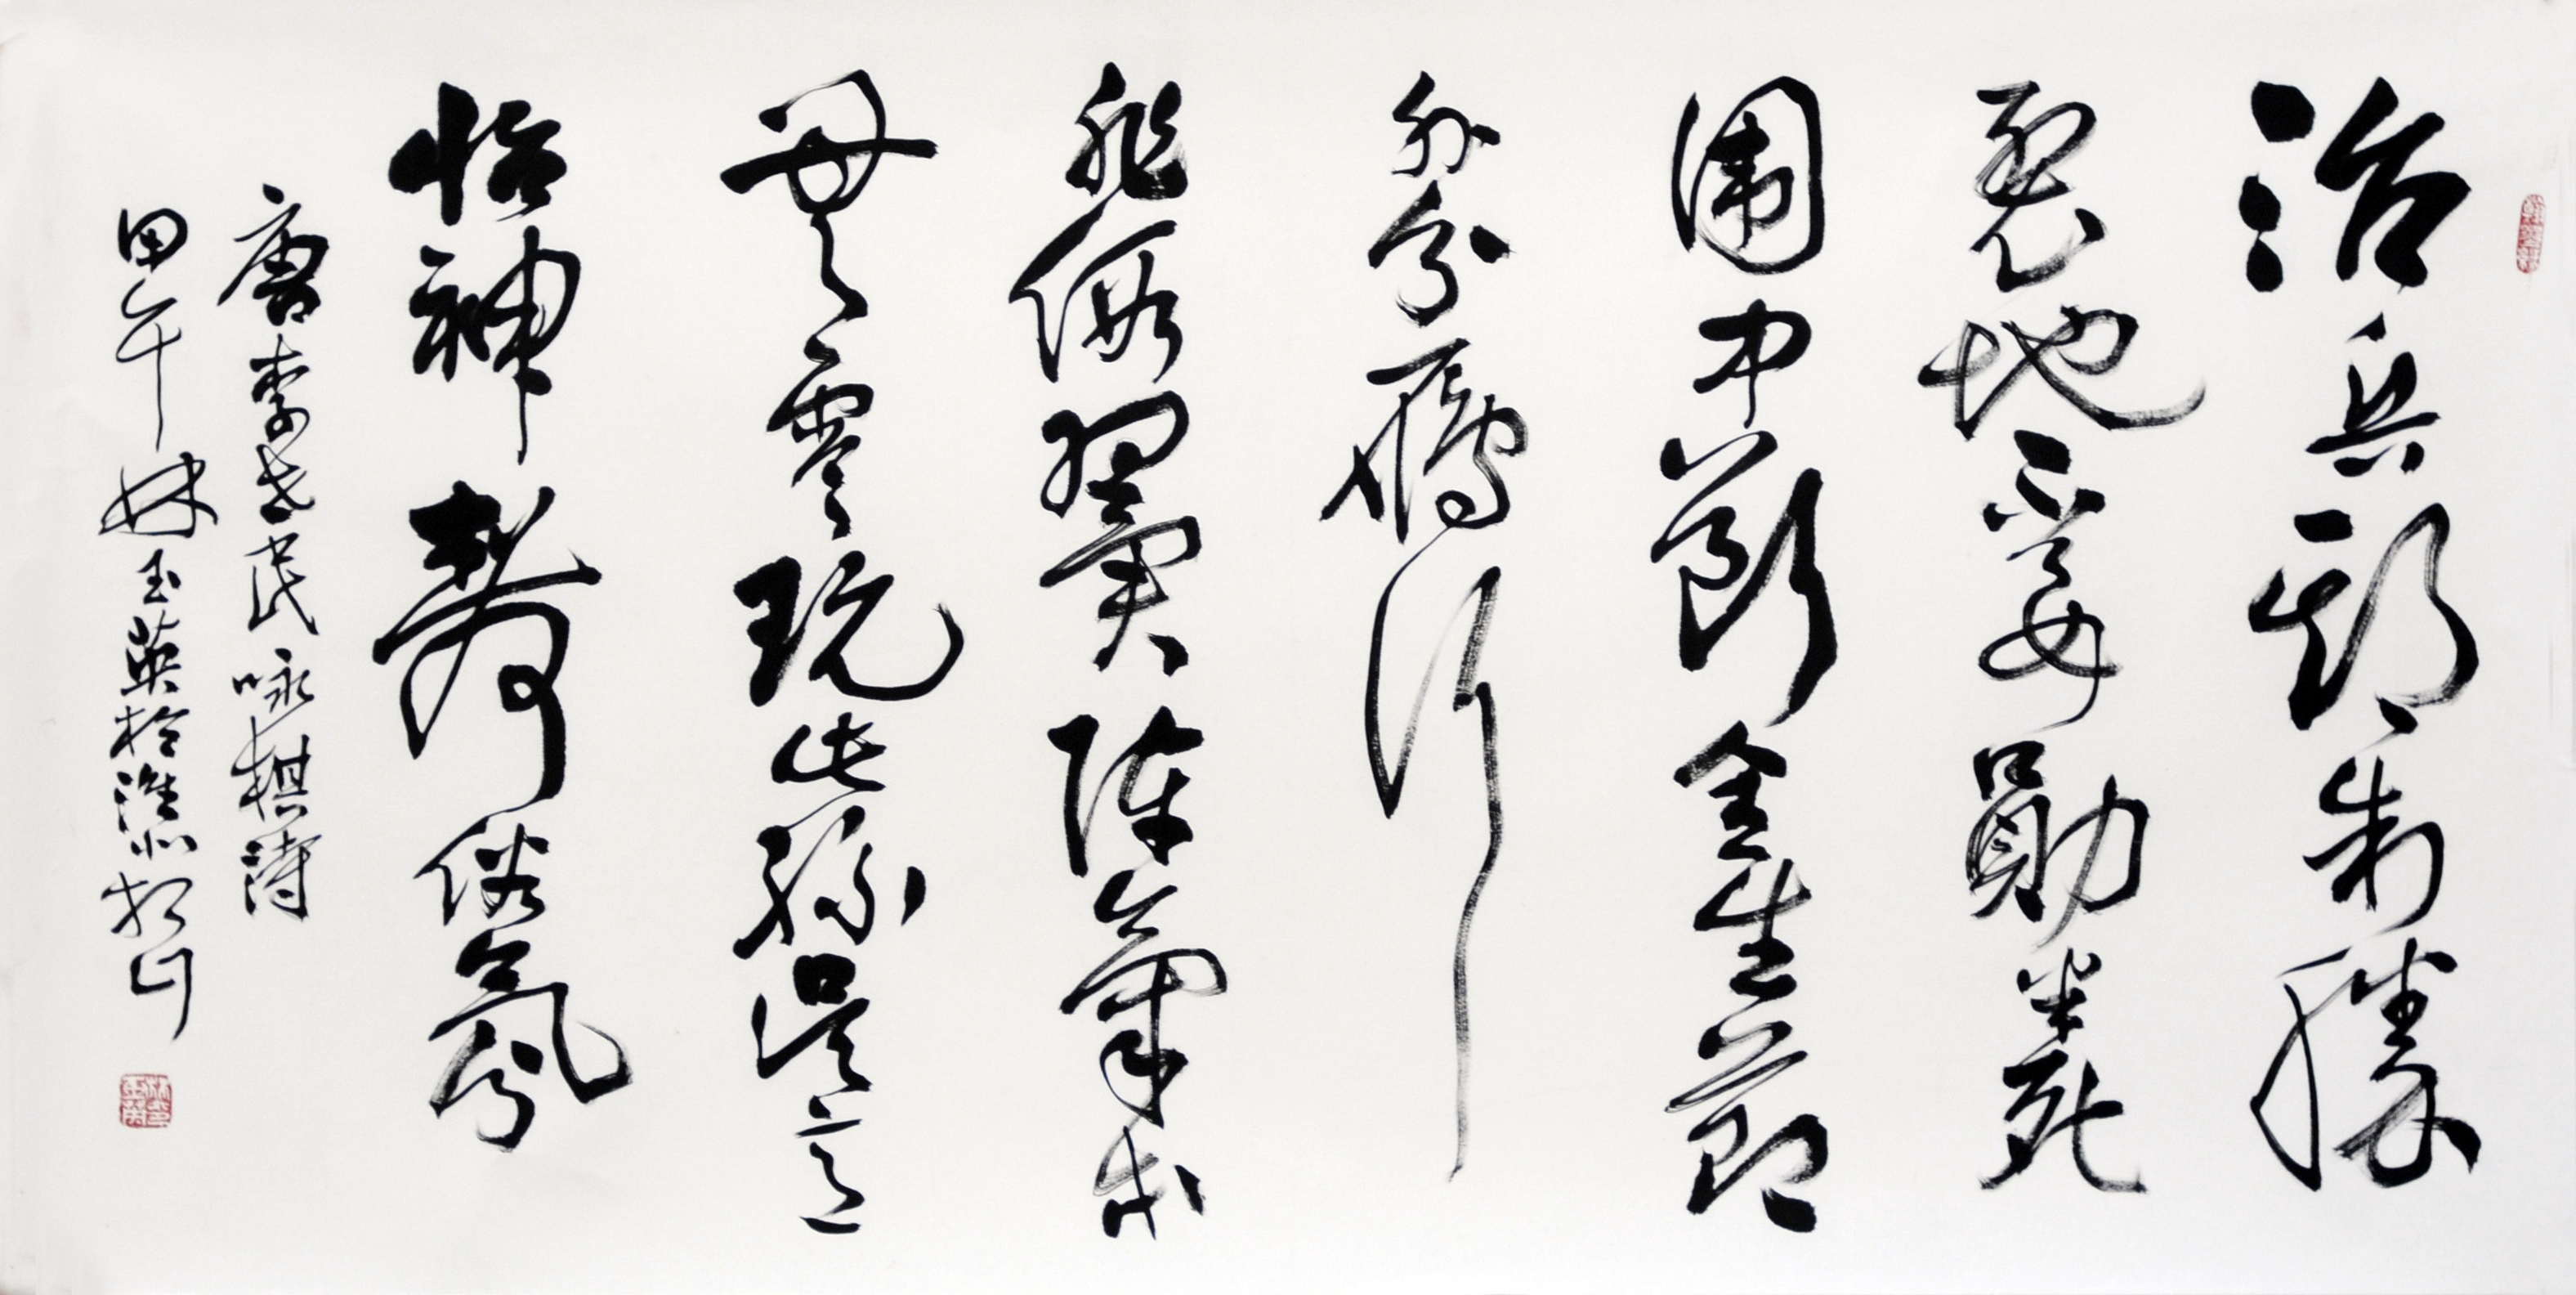 治兵期制勝
裂地不要勛半死
围中斷全生節
外分雁行
非假翼陣氣本
無雲玩此孫吴意
怡神静俗氛
唐李世民咏棋詩
甲午林玉英於淮北相山